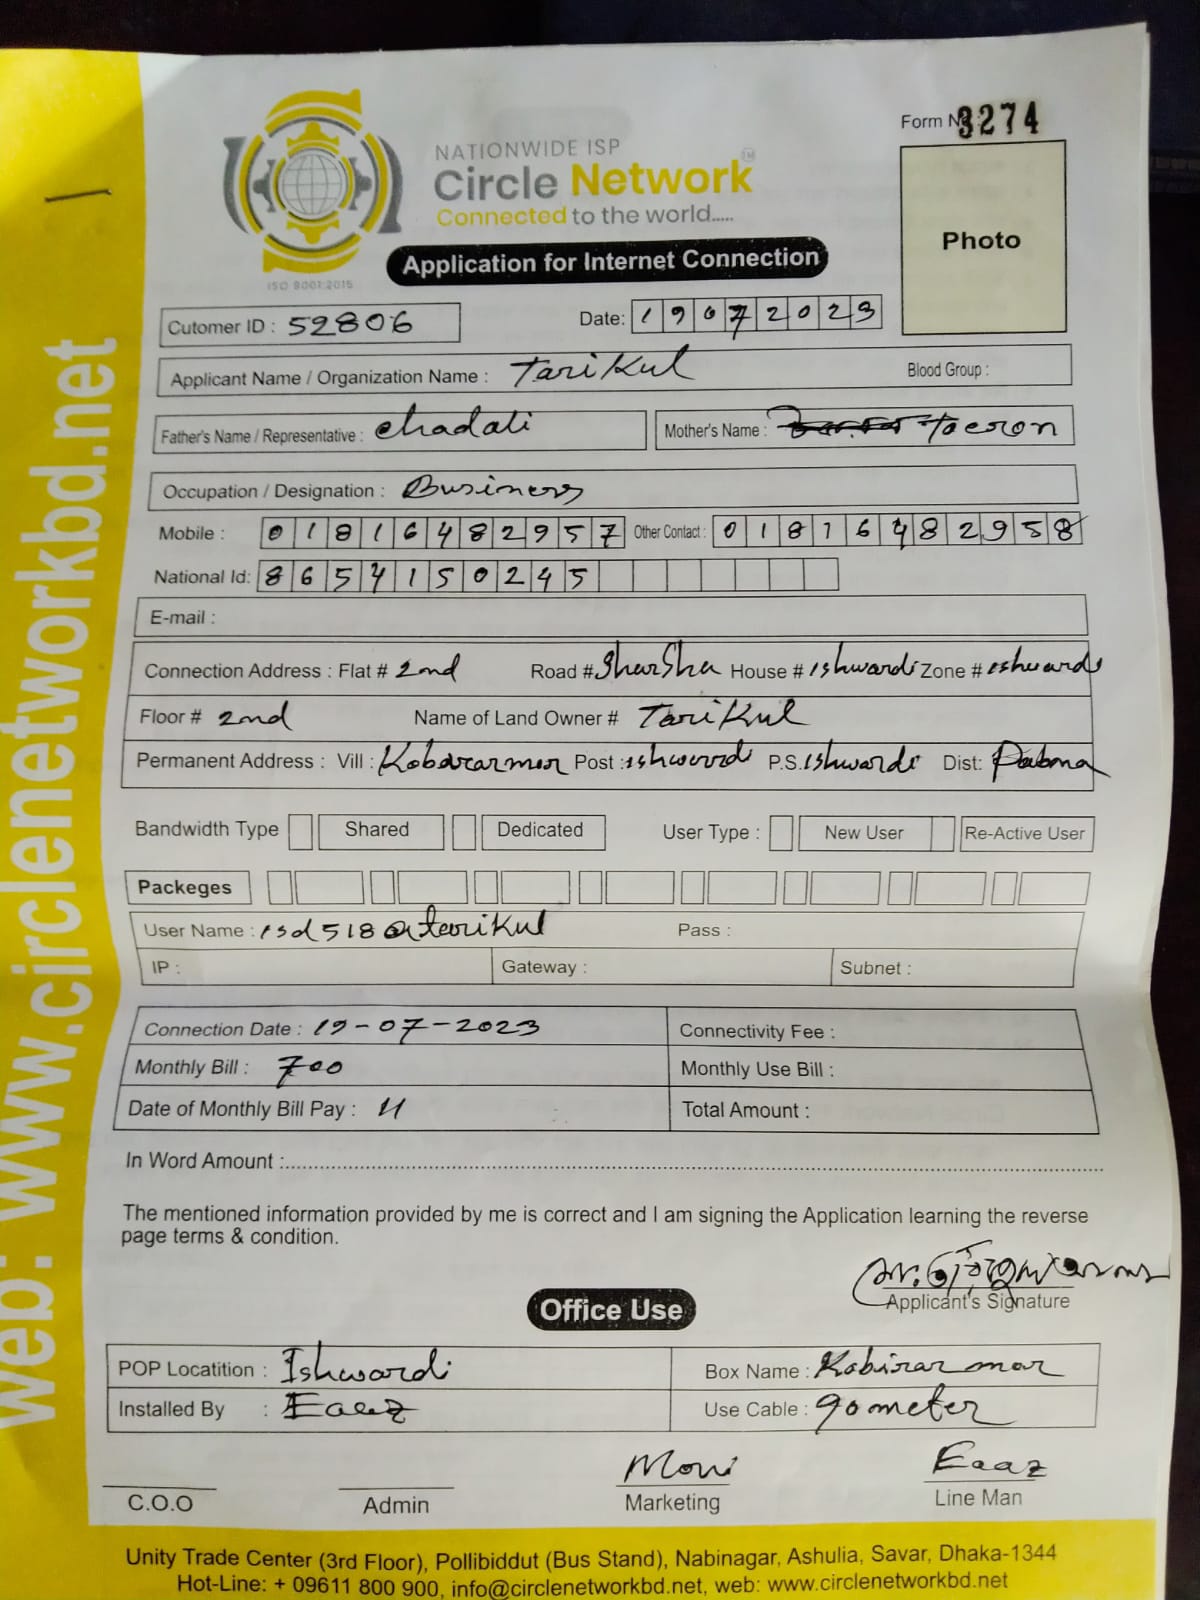 Form No 3274
NATIONWIDE ISP
Circle Network TM
Connected to the world.....
ISO 9001:2015
Application for Internet Connection
Photo
Cutomer ID : 52806
Date: 19072023
Applicant Name / Organization Name : Tarikul
Blood Group :
Father's Name / Representative : Chadali
Mother's Name :
Occupation / Designation : Business
Mobile : 01816482957 Other Contact : 01816482958
National Id: 8654150245
E-mail :
Connection Address : Flat # 2nd Road # Sharsha House # ishwardi Zone # ishwardi
Floor # 2nd Name of Land Owner # Tarikul
Permanent Address : Vill : Kobararmor Post : ishwordi P.S. ishwardi Dist: Pabna
Bandwidth Type Shared Dedicated User Type : New User Re-Active User
Packeges
User Name : isd518@tarikul Pass :
IP : Gateway : Subnet :
Connection Date : 19-07-2023 Connectivity Fee :
Monthly Bill : 700 Monthly Use Bill :
Date of Monthly Bill Pay : Total Amount :
In Word Amount :
The mentioned information provided by me is correct and I am signing the Application learning the reverse
page terms & condition.
Applicant's Signature
Office Use
POP Locatition : Ishwardi Box Name : Kabirar mor
Installed By : Eaaz Use Cable : 90 meter
Moni Eaaz
C.O.O Admin Marketing Line Man
Unity Trade Center (3rd Floor), Pollibiddut (Bus Stand), Nabinagar, Ashulia, Savar, Dhaka-1344
Hot-Line: + 09611 800 900, info@circlenetworkbd.net, web: www.circlenetworkbd.net
web: www.circlenetworkbd.net